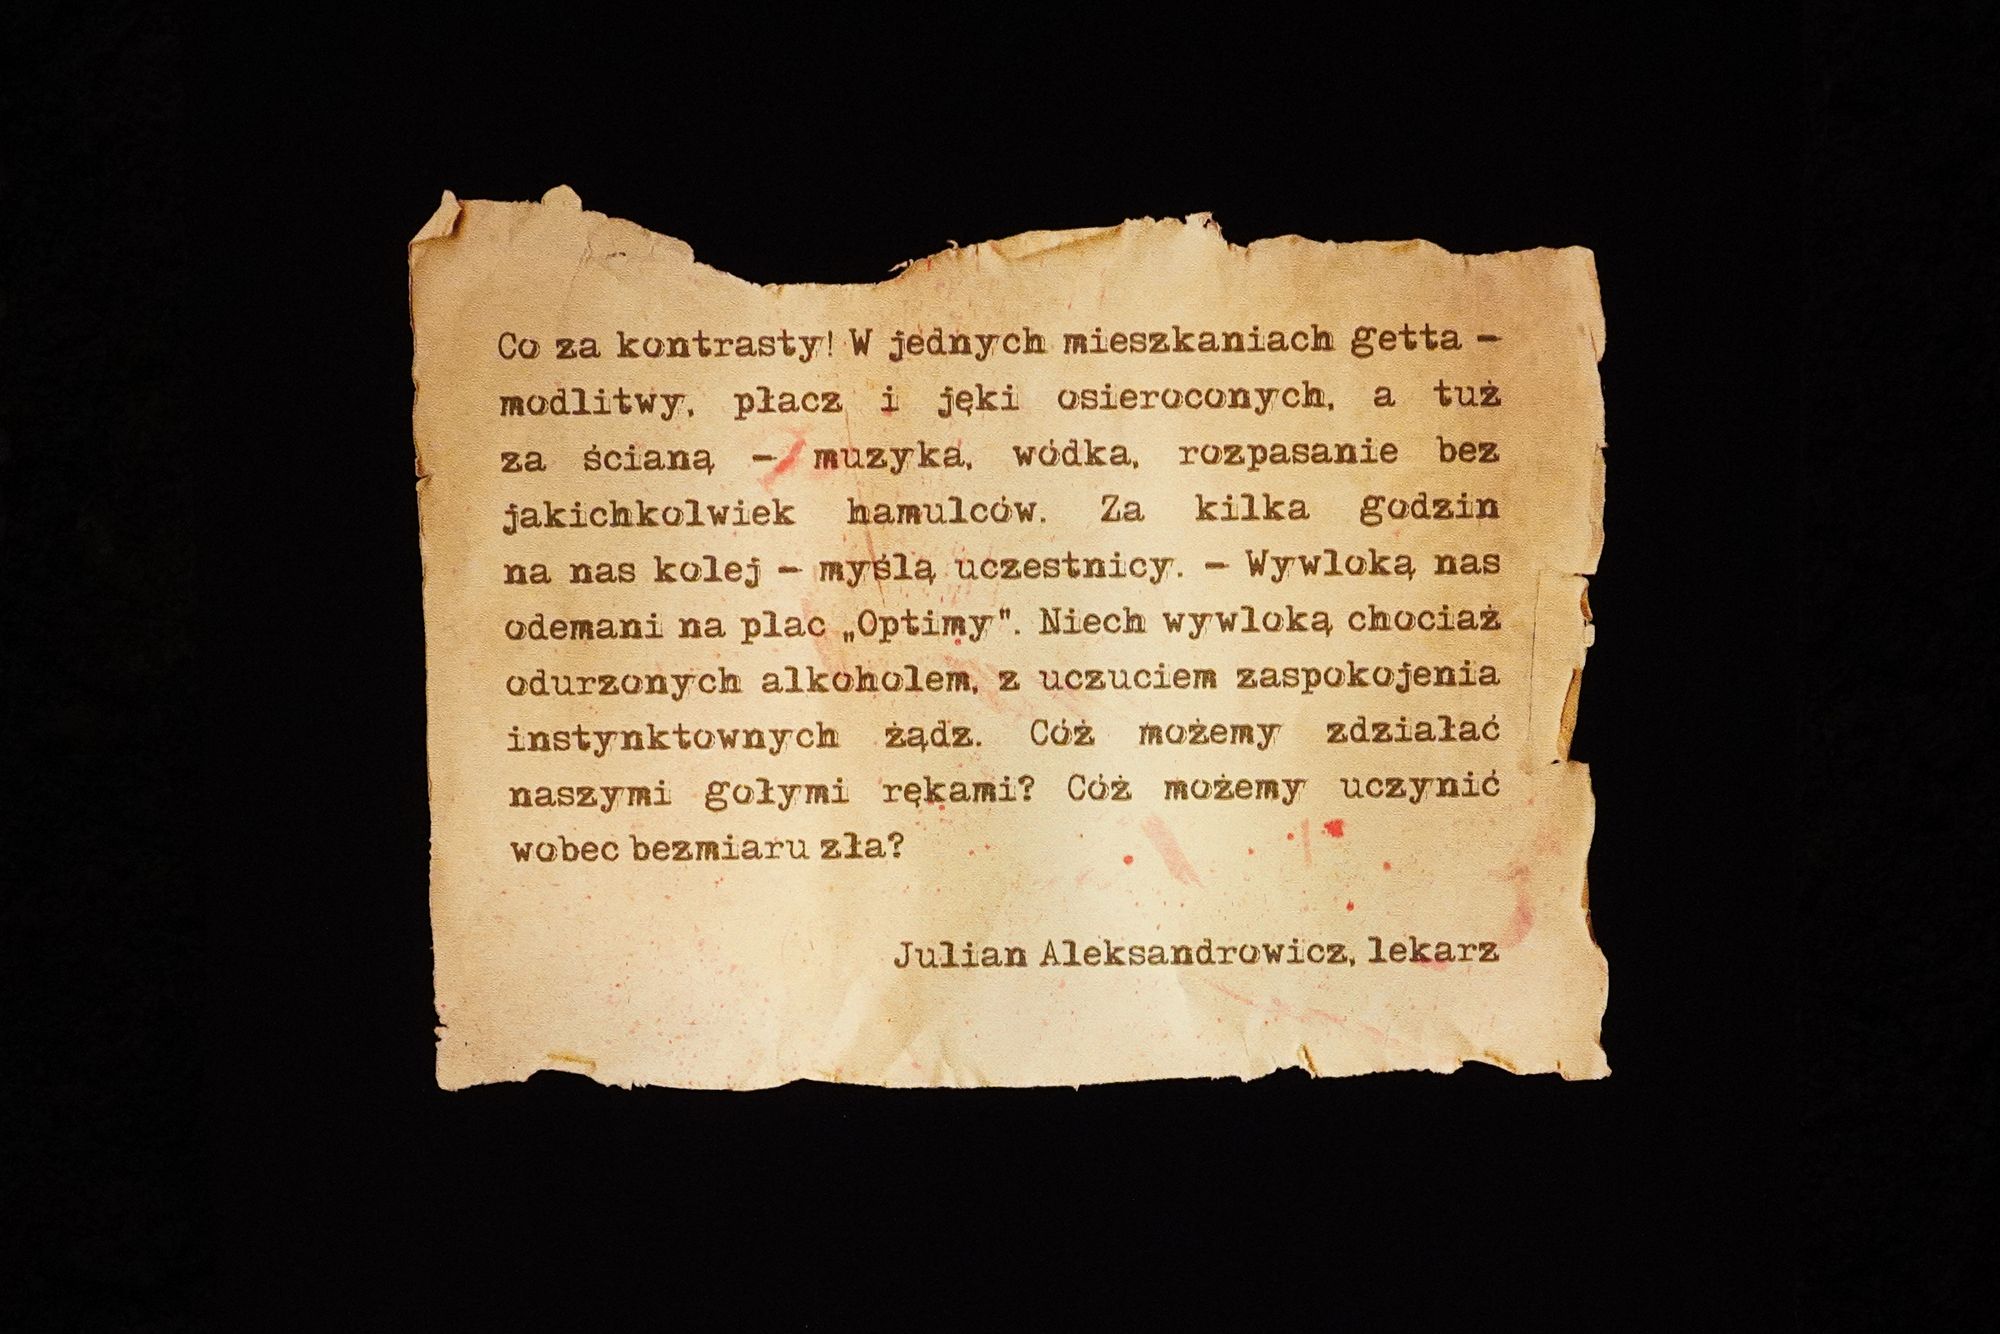 Co za kontrasty! W jednych mieszkaniach getta –
modlitwy, płacz i jęki osieroconych, a tuż
za ścianą – muzyka, wódka, rozpasanie bez
jakichkolwiek hamulców. Za kilka godzin
na nas kolej – myślą uczestnicy. – Wywloką nas
odemani na plac „Optimy". Niech wywloką chociaż
odurzonych alkoholem, z uczuciem zaspokojenia
instynktownych żądz. Cóż możemy zdziałać
naszymi gołymi rękami? Cóż możemy uczynić
wobec bezmiaru zła?
Julian Aleksandrowicz, lekarz